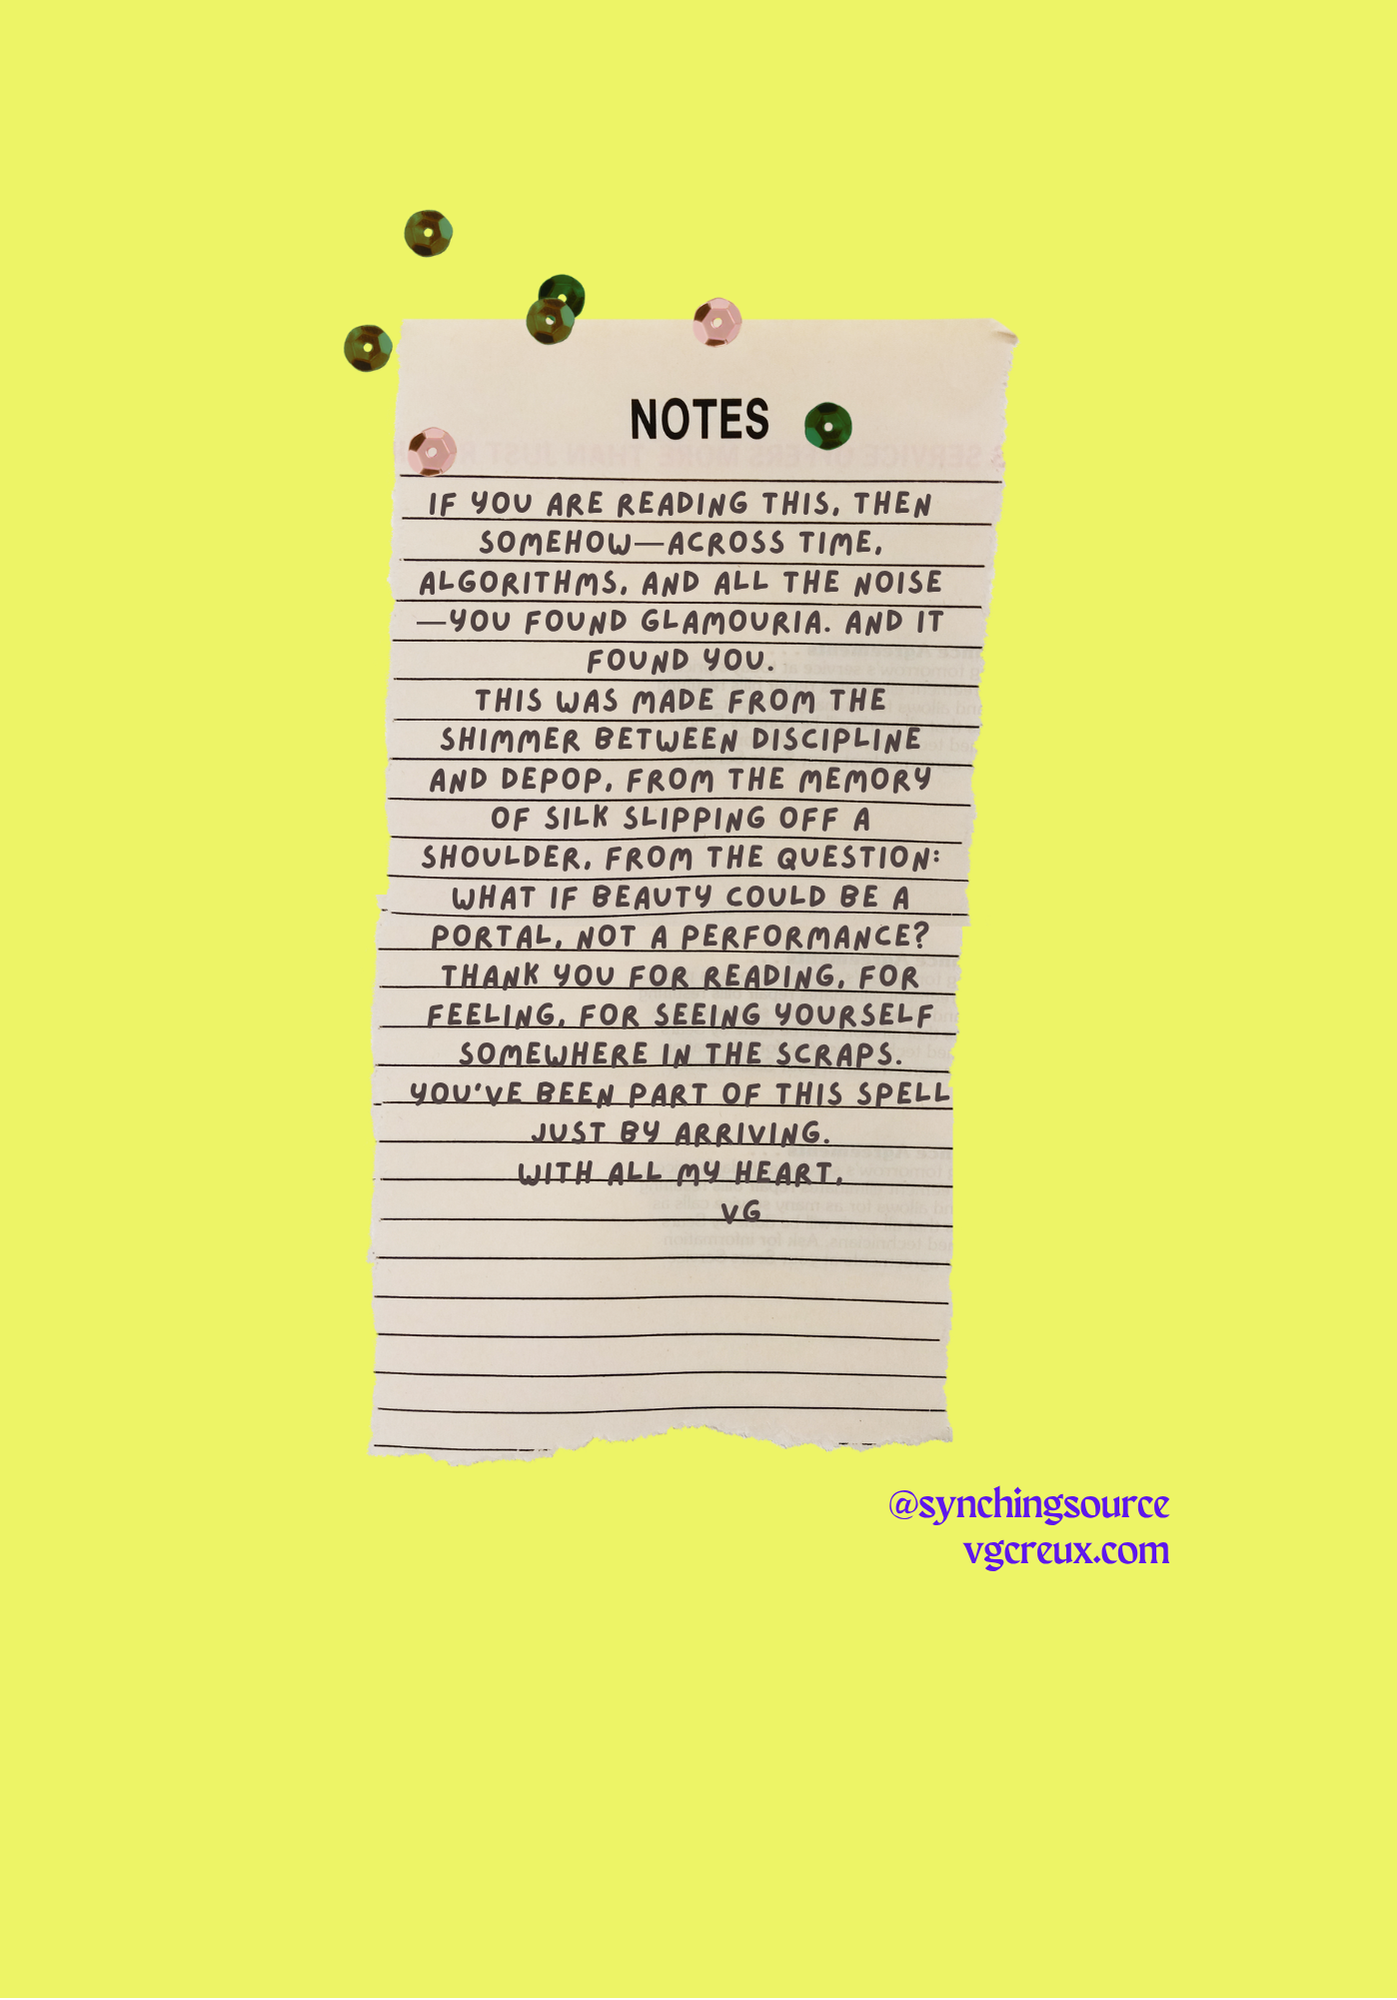 NOTES
IF YOU ARE READING THIS, THEN
SOMEHOW—ACROSS TIME,
ALGORITHMS, AND ALL THE NOISE
—YOU FOUND GLAMOURIA. AND IT
FOUND YOU.
THIS WAS MADE FROM THE
SHIMMER BETWEEN DISCIPLINE
AND DEPOP, FROM THE MEMORY
OF SILK SLIPPING OFF A
SHOULDER, FROM THE QUESTION:
WHAT IF BEAUTY COULD BE A
PORTAL, NOT A PERFORMANCE?
THANK YOU FOR READING, FOR
FEELING, FOR SEEING YOURSELF
SOMEWHERE IN THE SCRAPS.
YOU'VE BEEN PART OF THIS SPELL
JUST BY ARRIVING.
WITH ALL MY HEART,
VG
@synchingsource
vgcreux.com